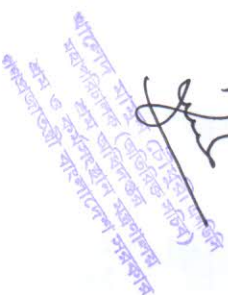 খালেদ মামুন চৌধুরী এনডিসি
মহাপরিচালক (অতিরিক্ত সচিব)
শ্রম অধিদপ্তর
শ্রম ও কর্মসংস্থান মন্ত্রণালয়
গণপ্রজাতন্ত্রী বাংলাদেশ সরকার